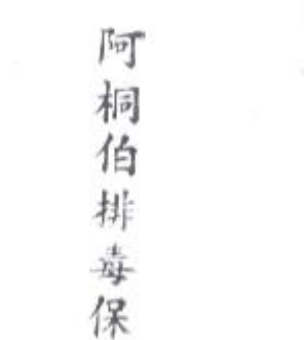 阿桐伯排毒保